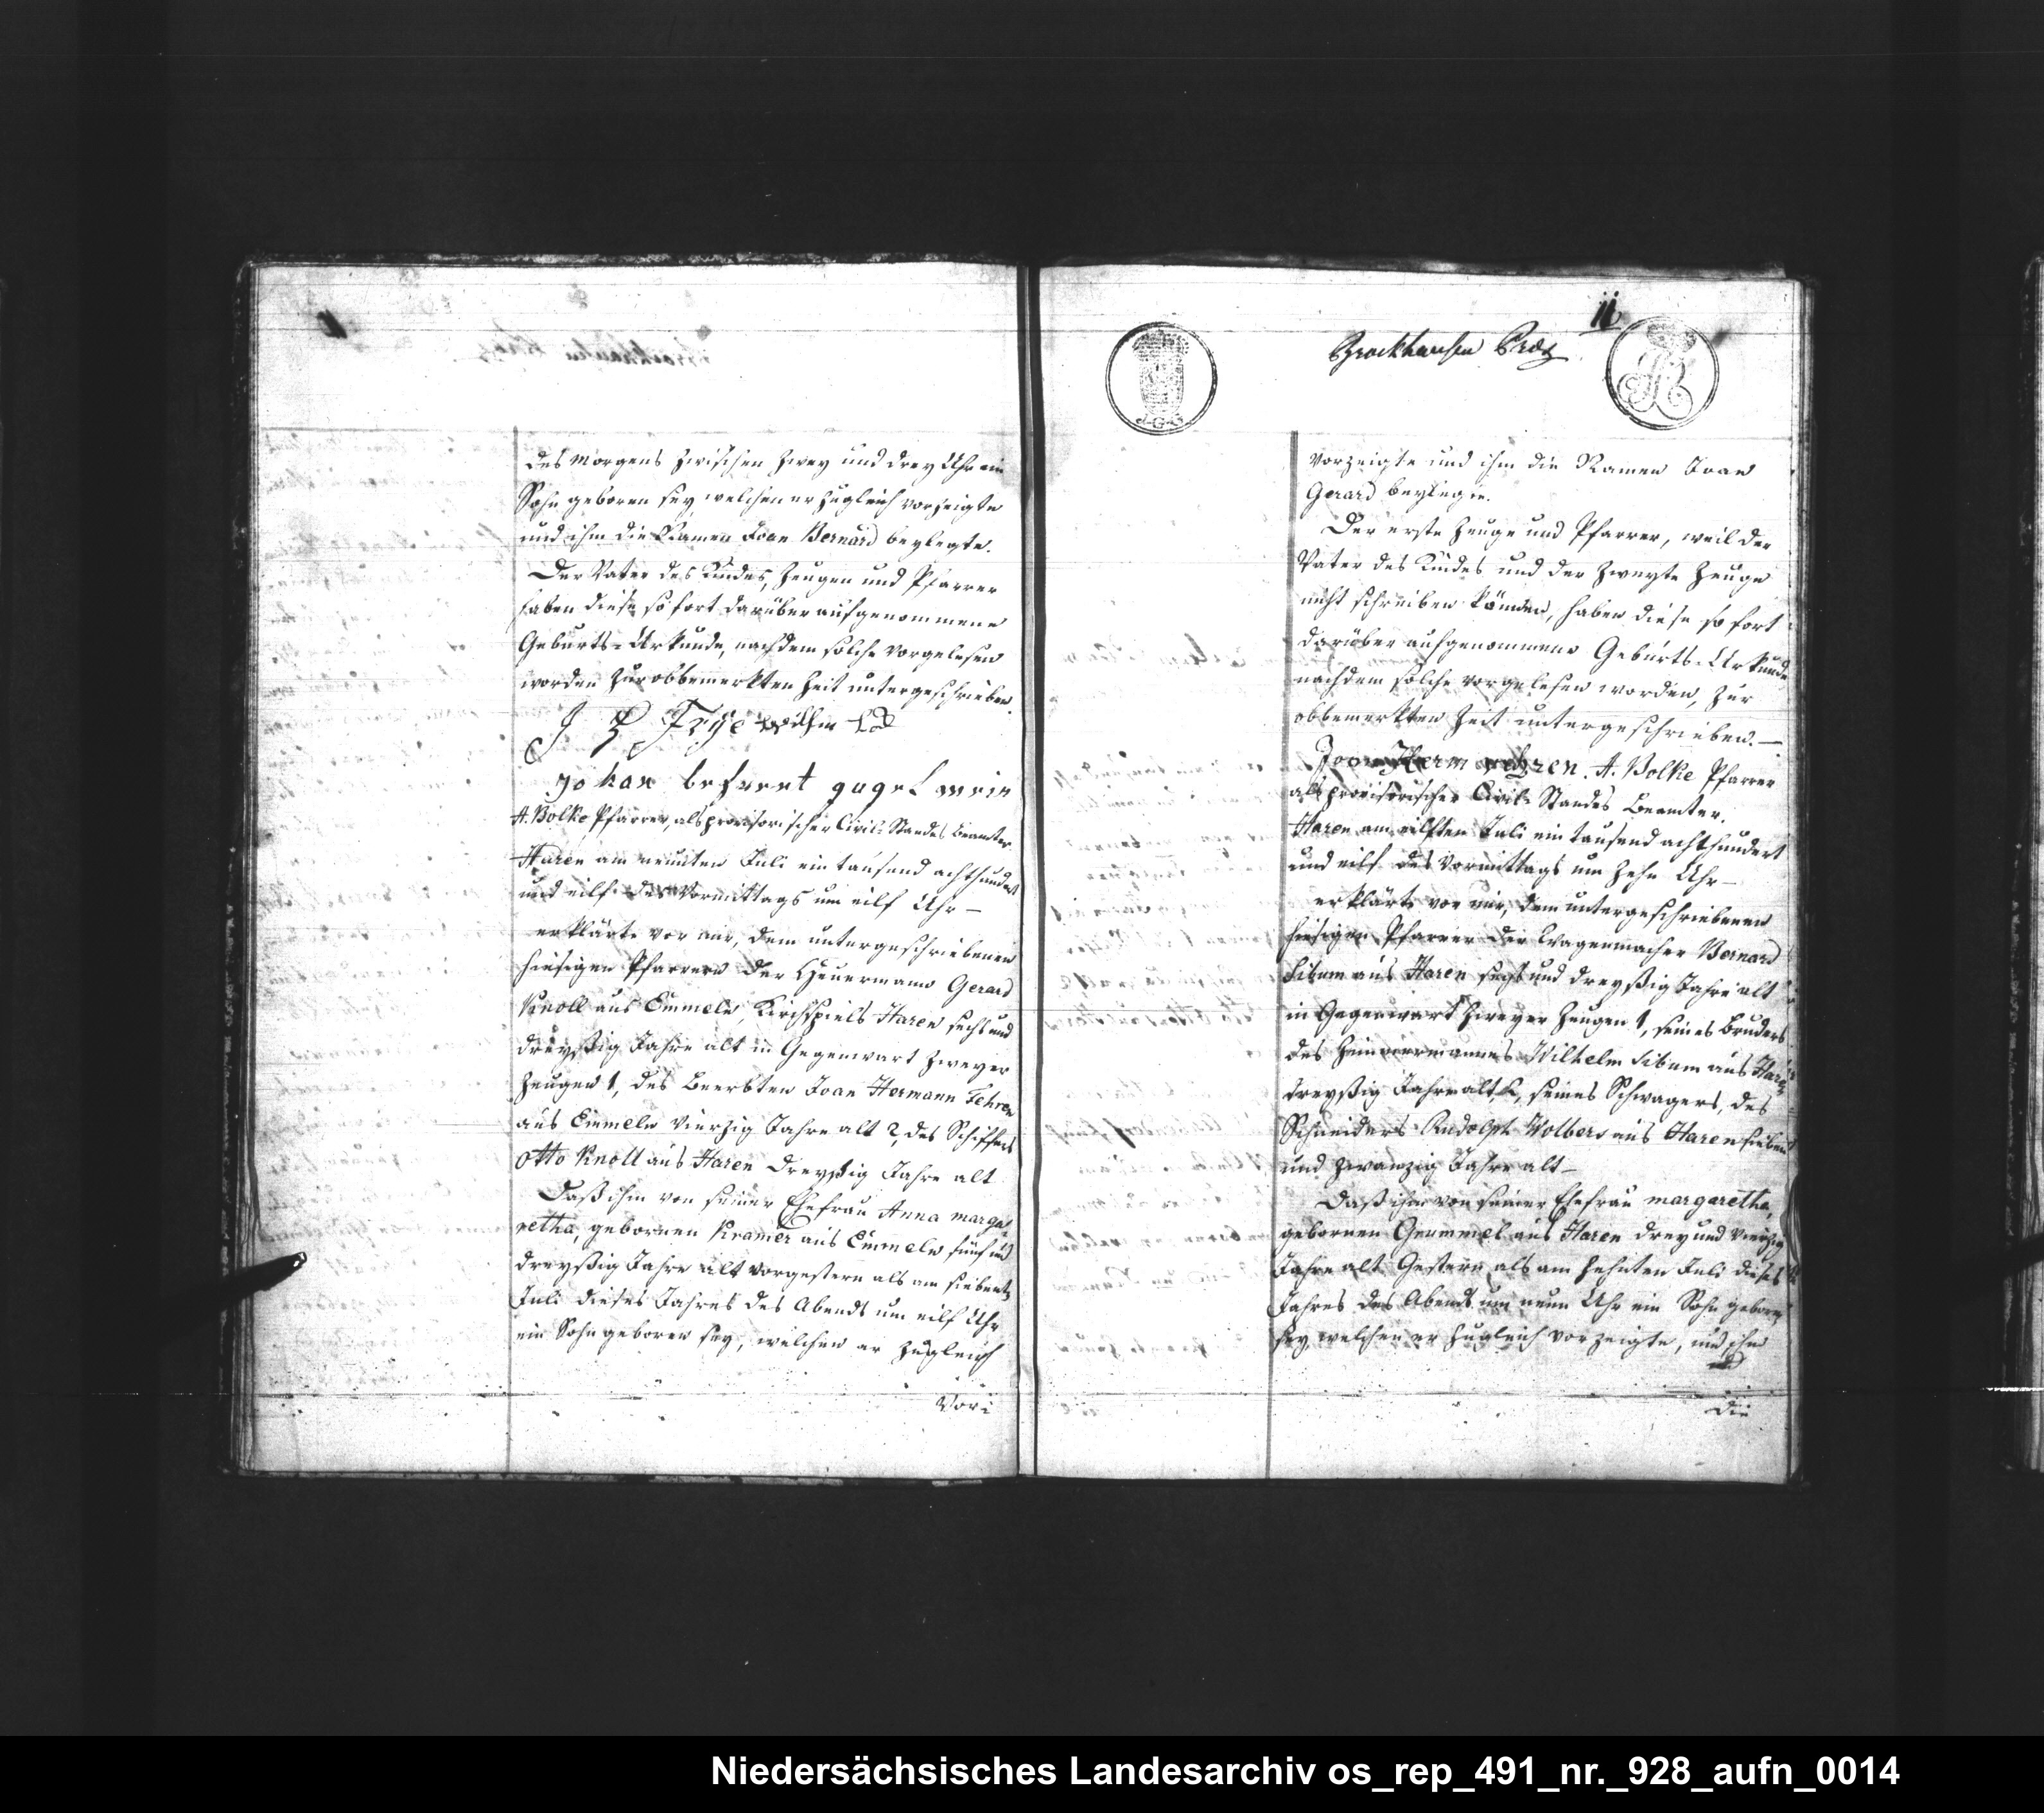 des Morgens zwischen zwey und drey Uhr ein
Sohn geboren sey, welchen er zugleich vorzeigte
und ihm die Namen Joan Bernard beylegte.
Der Vater des Kindes, Zeugen und Pfarrer
haben diese sofort darüber aufgenommene
Geburts-Urkunde, nachdem solche vorgelesen
worden zur obbemerkten Zeit untergeschrieben.
J Frye
johan
A. Bolke Pfarrer, als provisorischer Civil-Standes Beamter
Haren am neunten Juli ein tausend achthundert
und eilf des Vormittags um eilf Uhr –
erklärte vor mir, dem untergeschriebenen
hiesigen Pfarrern der Heuermann Gerard
Knoll aus Emmeln, Kirchspiels Haren sechs und
dreyßig Jahre alt in Gegenwart zweyer
Zeugen 1, des Beerbten Joan Hermann Fehren
aus Emmeln vierzig Jahre alt 2, des Schiffers
Otto Knoll aus Haren dreyßig Jahre alt
Daß ihm von seiner Ehefrau Anna marga-
retha, gebornen Kramer aus Emmeln fünf und
dreyßig Jahre alt vorgestern als am siebenten
Juli dieses Jahres des Abends um eilf Uhr
ein Sohn geboren sey, welchen er zugleich
vor:
11
Brockhausen
J.G.O
vorzeigte und ihm die Namen Joan
Gerard beylegte.
Der erste Zeuge und Pfarrer, weil der
Vater des Kindes und der zweyte Zeuge
nicht schreiben können, haben diese sofort
darüber aufgenommene Geburts-Urkunde
nachdem solche vorgelesen worden, zur
obbemerkten Zeit untergeschrieben. –
Joan Herm A. Bolke Pfarrer
als provisorischer Civil-Standes Beamter.
Haren am eilften Juli ein tausend achthundert
und eilf des Vormittags um zehn Uhr –
erklärte vor mir, dem untergeschriebenen
hiesigen Pfarrer der Wagenmacher Bernard
Sibum aus Haren sechs und dreyßig Jahre alt
in Gegenwart zweyer Zeugen 1, seines Bruders
des Wilhelm Sibum aus Haren
dreyßig Jahre alt, 2, seines Schwagers, des
Schneiders Rudolph Wolbers aus Haren sieben
und zwanzig Jahre alt –
Daß ihm von seiner Ehefrau margaretha,
gebornen aus Haren drey und vierzig
Jahre alt Gestern als am zehnten Juli dieses
Jahres des Abends um neun Uhr ein Sohn geboren
sey, welchen er zugleich vorzeigte, und ihm
die
Niedersächsisches Landesarchiv os_rep_491_nr._928_aufn_0014